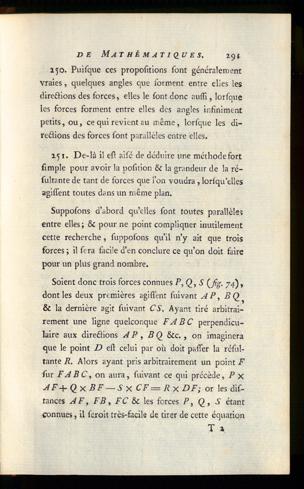 DE MATHÉMATIQUES. 291
250. Puiſque ces propoſitions ſont généralement
vraies, quelques angles que forment entre elles les
directions des forces, elles le ſont donc auſſi, lorſque
les forces forment entre elles des angles infiniment
petits, ou, ce qui revient au même, lorſque les di-
rections des forces ſont parallèles entre elles.
251. De-là il eſt aiſé de déduire une méthode fort
ſimple pour avoir la poſition & la grandeur de la ré-
ſultante de tant de forces que l'on voudra, lorſqu'elles
agiſſent toutes dans un même plan.
Suppoſons d'abord qu'elles ſont toutes parallèles
entre elles; & pour ne point compliquer inutilement
cette recherche, ſuppoſons qu'il n'y ait que trois
forces; il ſera facile d'en conclure ce qu'on doit faire
pour un plus grand nombre.
Soient donc trois forces connues P, Q, S (fig. 74),
dont les deux premières agiſſent ſuivant AP, BQ,
& la dernière agit ſuivant CS. Ayant tiré arbitrai-
rement une ligne quelconque FABC perpendicu-
laire aux directions AP, BQ &c., on imaginera
que le point D eſt celui par où doit paſſer la réſul-
tante R. Alors ayant pris arbitrairement un point F
ſur FABC, on aura, ſuivant ce qui précède, P ×
AF + Q × BF — S × CF = R × DF; or les diſ-
tances AF, FB, FC & les forces P, Q, S étant
connues, il ſeroit très-facile de tirer de cette équation
T 2